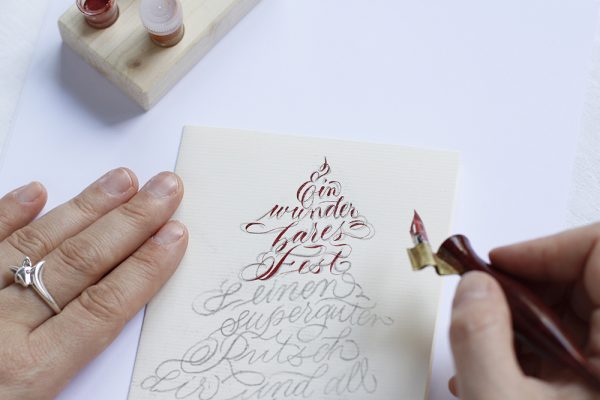 Ein
wunder
bares
Fest
& einen
superguten
Rutsch
Dir und all